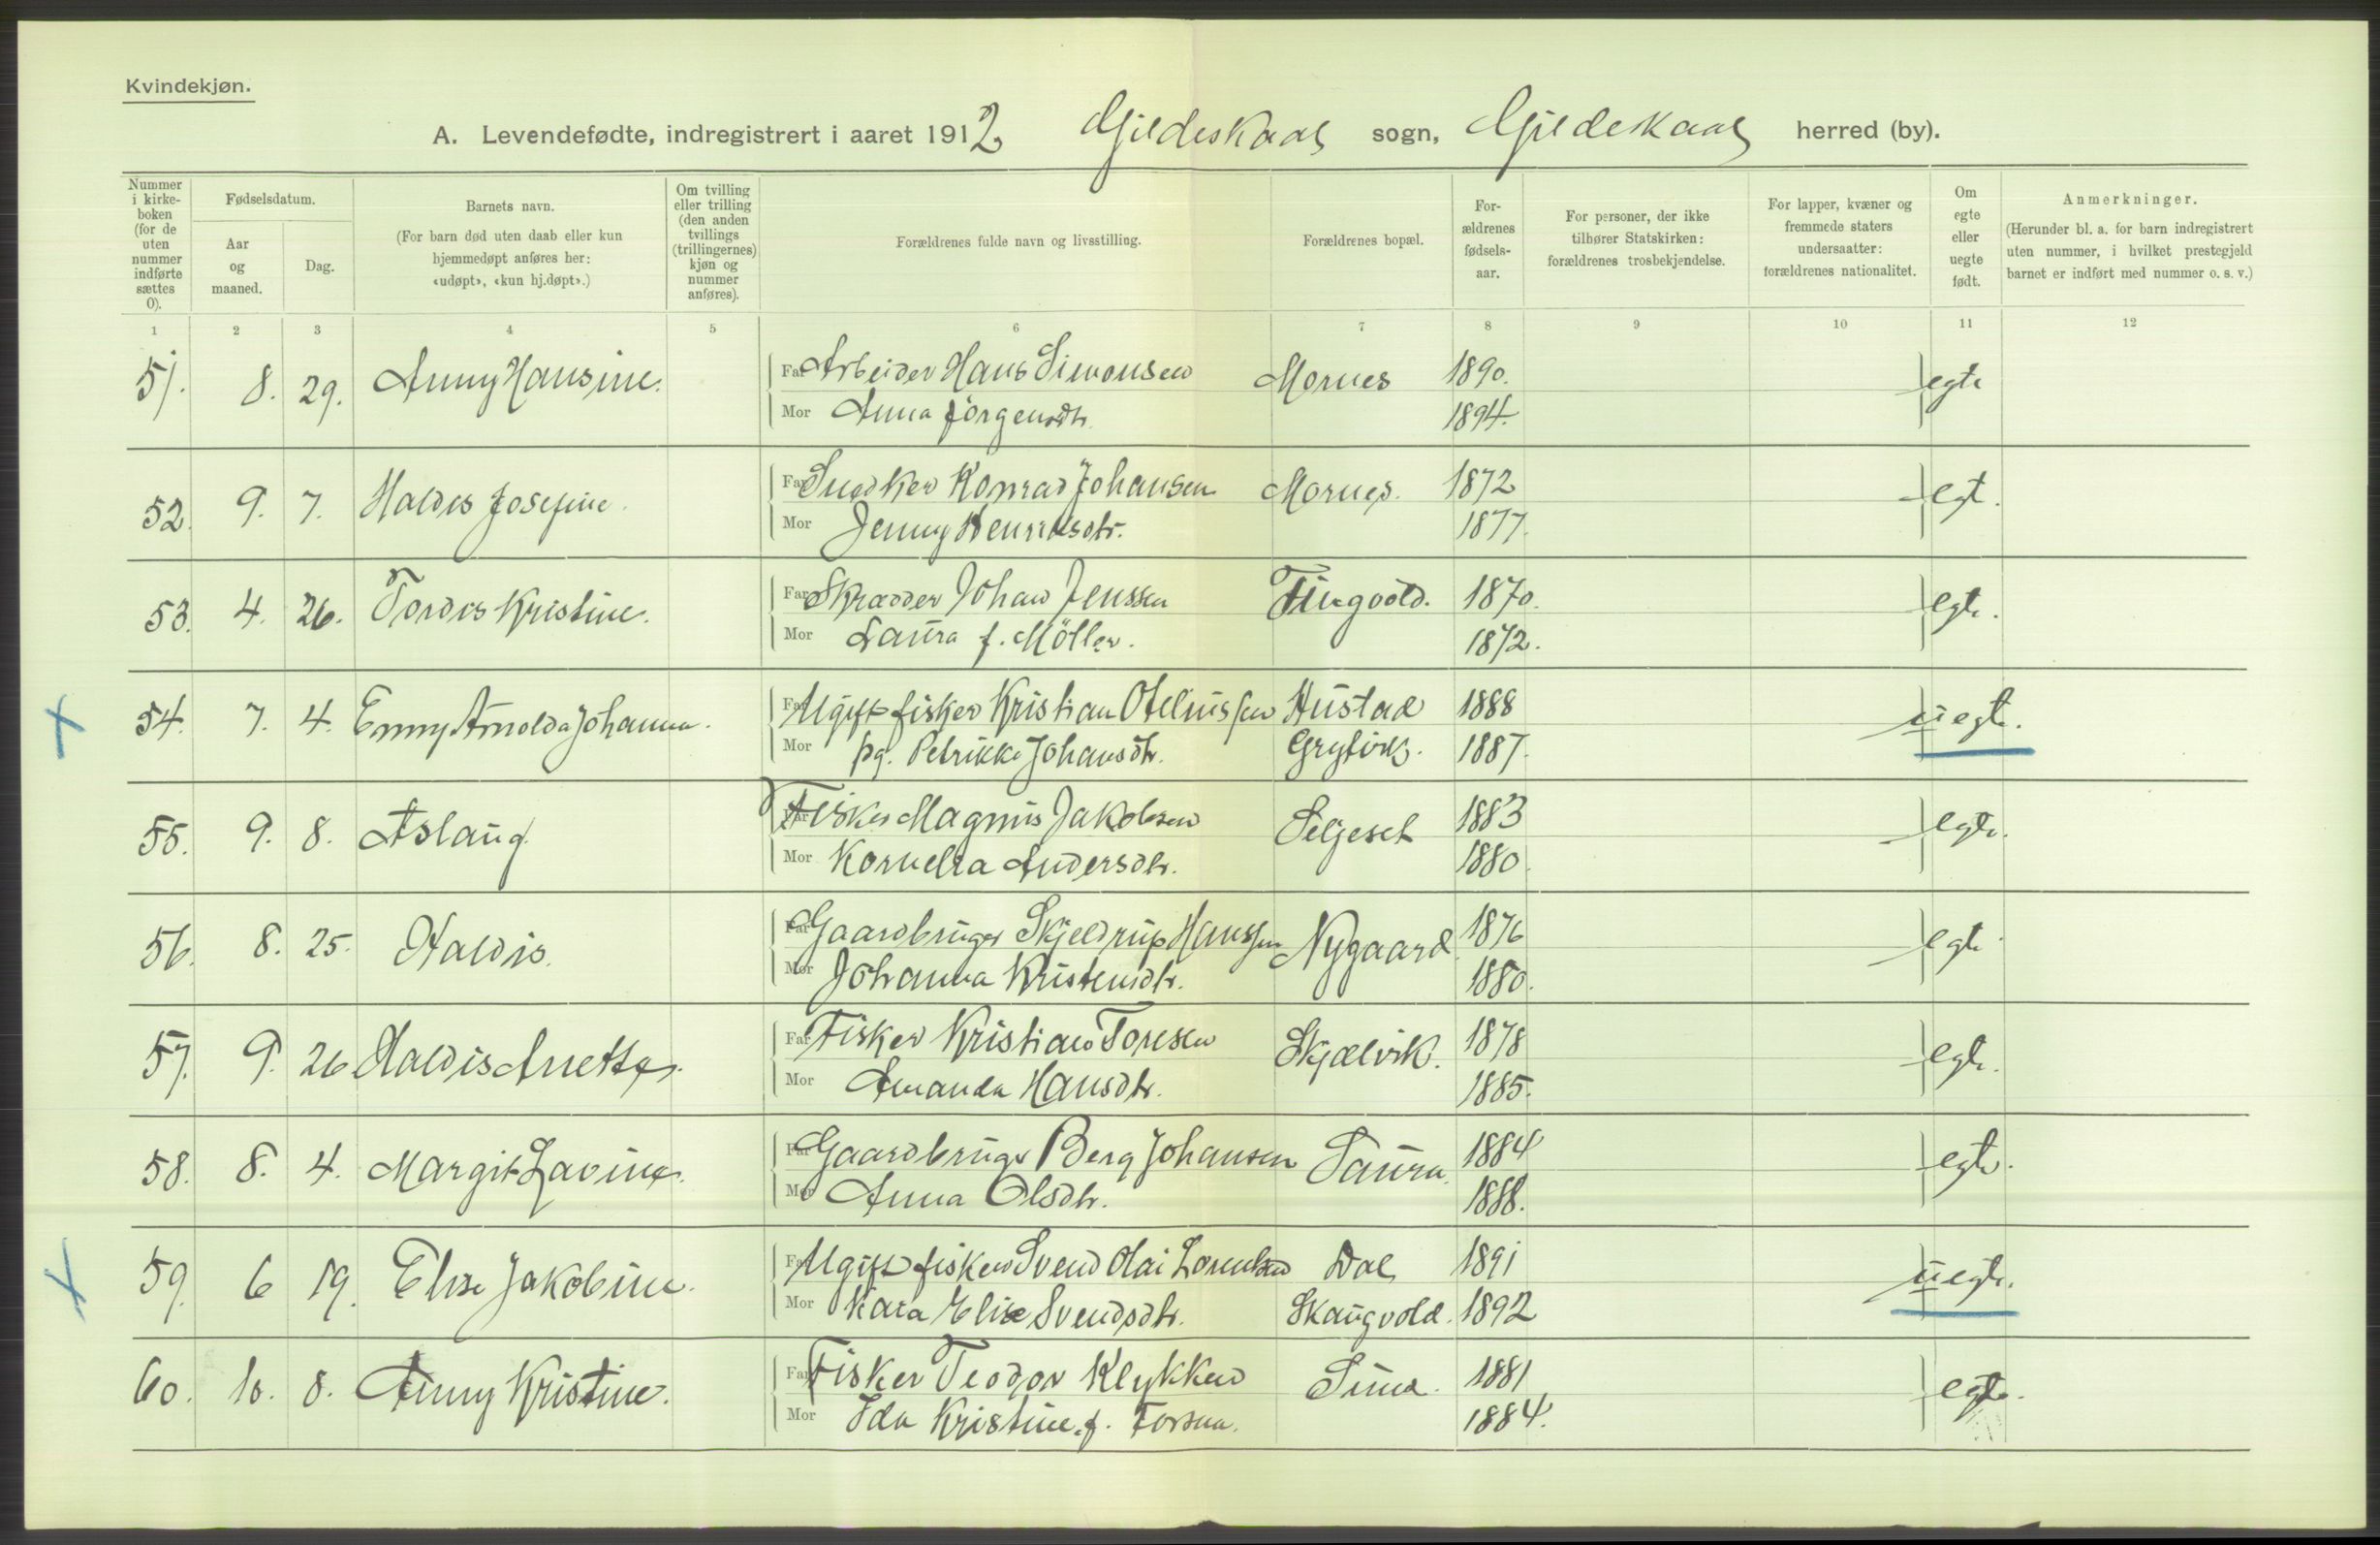 Kvindekjøn.
A. Levendefødte, indregistrert i aaret 1912 Gildeskaal sogn, Gildeskaal herred (by).
Nummer i kirke-boken (for de uten nummer indførte sættes 0).
Fødselsdatum.
Aar og maaned.
Dag.
Barnets navn.
(For barn død uten daab eller kun hjemmedøpt anføres her: «udøpt», «kun hj.døpt».)
Om tvilling eller trilling (den anden tvillings (trillingernes) kjøn og nummer anføres).
Forældrenes fulde navn og livsstilling.
Forældrenes bopæl.
For-ældrenes fødsels-aar.
For personer, der ikke tilhører Statskirken: forældrenes trosbekjendelse.
For lapper, kvæner og fremmede staters undersaatter: forældrenes nationalitet.
Om egte eller uegte født.
Anmerkninger.
(Herunder bl. a. for barn indregistrert uten nummer, i hvilket prestegjeld barnet er indført med nummer o. s. v.)
1 2 3 4 5 6 7 8 9 10 11 12
51. 8. 29. Anny Hansine. Far Arbeider Hans Simonsen Mornes 1890. egte
Mor Anna Jörgensdtr. 1894.
52. 9. 7. Haldis Josefine. Far Snedker Konrad Johansen Mornes. 1872 egt.
Mor Jenny Henriksdtr. 1877.
53. 4. 26. Tordis Kristine. Far Skrædder Johan Jenssen Tingvold. 1870. egte.
Mor Laura f. Möller. 1872.
54. 7. 4. Emmy Arnolda Johanna. Far Ugift fisker Kristian Oteliussen Hustad 1888 uegte.
Mor pg. Petrikke Johansdtr. 1887.
55. 9. 8. Aslaug Far Fisker Magnus Jakobsen Seljeset 1883 egte.
Mor Kornelia Andersdtr. 1880.
56. 8. 25. Haldis. Far Gaardbruger Skjeldrup Hanssen Nygaard 1876 egte
Mor Johanna Kristensdtr. 1880.
57. 9. 26 Haldis Anette. Far Fisker Kristian Toresen Skjælvik. 1878 egte.
Mor Amanda Hansdtr. 1885.
58. 8. 4. Margit Lovine. Far Gaardbruger Berg Johansen Saura. 1884 egte.
Mor Anna Olsdtr. 1888.
59. 6 19. Elise Jakobine. Far Ugift fisker Svend Olai Lorentsen Dal 1891 uegte.
Mor Kaia Elise Svendsdtr. Skaugvold. 1892
60. 10. 8. Anny Kristine. Far Fisker Teodor Klykken Sund. 1881 egte.
Mor Ida Kristine f. Forsaa. 1884.